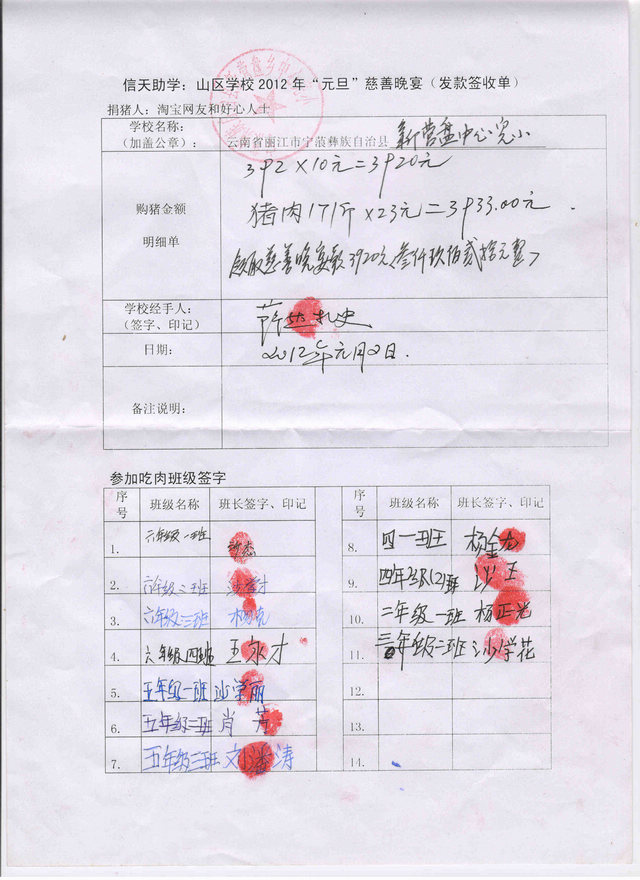 信天助学：山区学校2012年“元旦”慈善晚宴（发款签收单）
捐猪人：淘宝网友和好心人士
学校名称：
（加盖公章）：
云南省丽江市宁蒗彝族自治县 新营盘中心完小
购猪金额
明细单
392×10元=3920元
猪肉171斤×23元=3933.00元.
领取慈善晚宴款3920元叁仟玖佰贰拾元整
学校经手人：
（签字、印记）
日期：
2012年元月2日.
备注说明：
参加吃肉班级签字
序号 班级名称 班长签字、印记
1. 六年级一班
2. 六年级二班
3. 六年级三班
4. 六年级四班 王永才
5. 五年级一班 沙学丽
6. 五年级二班 肖芳
7. 五年级三班 刘潘涛
序号 班级名称 班长签字、印记
8. 四一班 杨金龙
9. 四年级(2)班
10. 二年级一班 杨正光
11. 年级二班 沙学花
12.
13.
14.